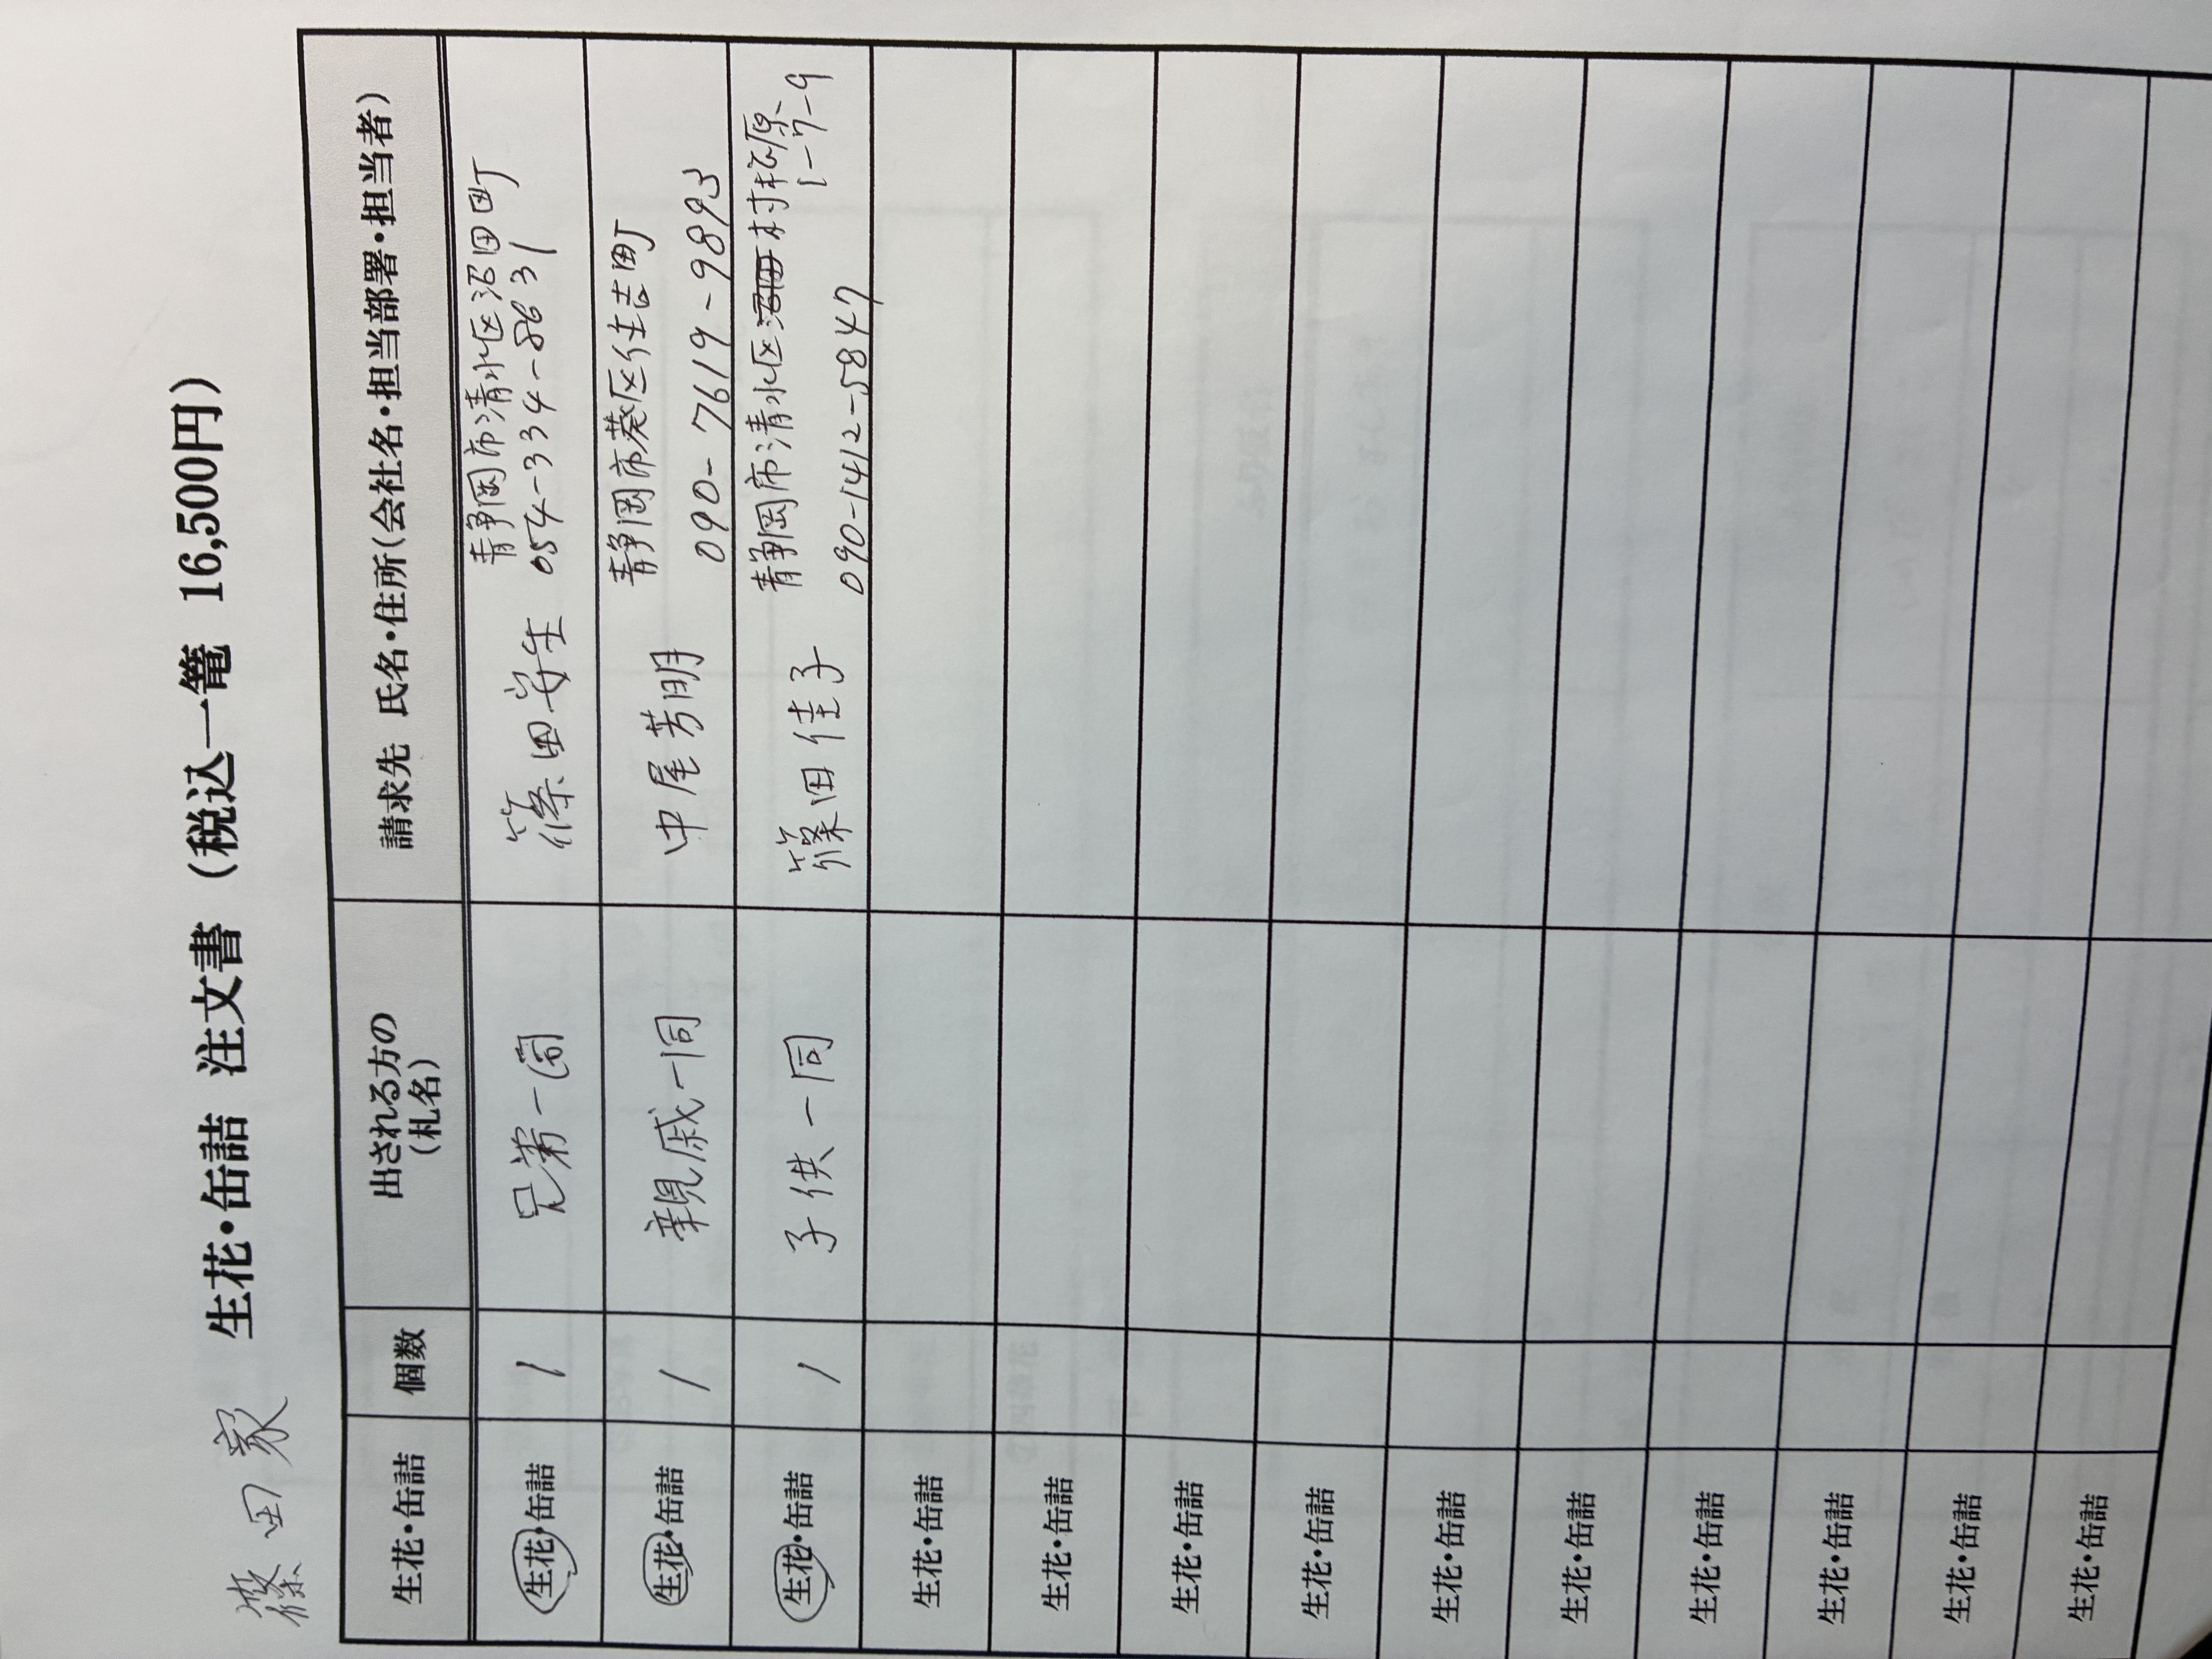 篠田家 生花・缶詰 注文書 （税込一篭 16,500円）
生花・缶詰 個数 出される方の（札名） 請求先 氏名・住所（会社名・担当部署・担当者）
生花・缶詰 1 兄弟一同 篠田安生 静岡市清水区沼田町
054-334-8631
生花・缶詰 1 親戚一同 中尾芳明 静岡市葵区住吉町
090-7619-9893
生花・缶詰 1 子供一同 篠田佳子 静岡市清水区村松原
1-7-9
090-1412-5847
生花・缶詰
生花・缶詰
生花・缶詰
生花・缶詰
生花・缶詰
生花・缶詰
生花・缶詰
生花・缶詰
生花・缶詰
生花・缶詰